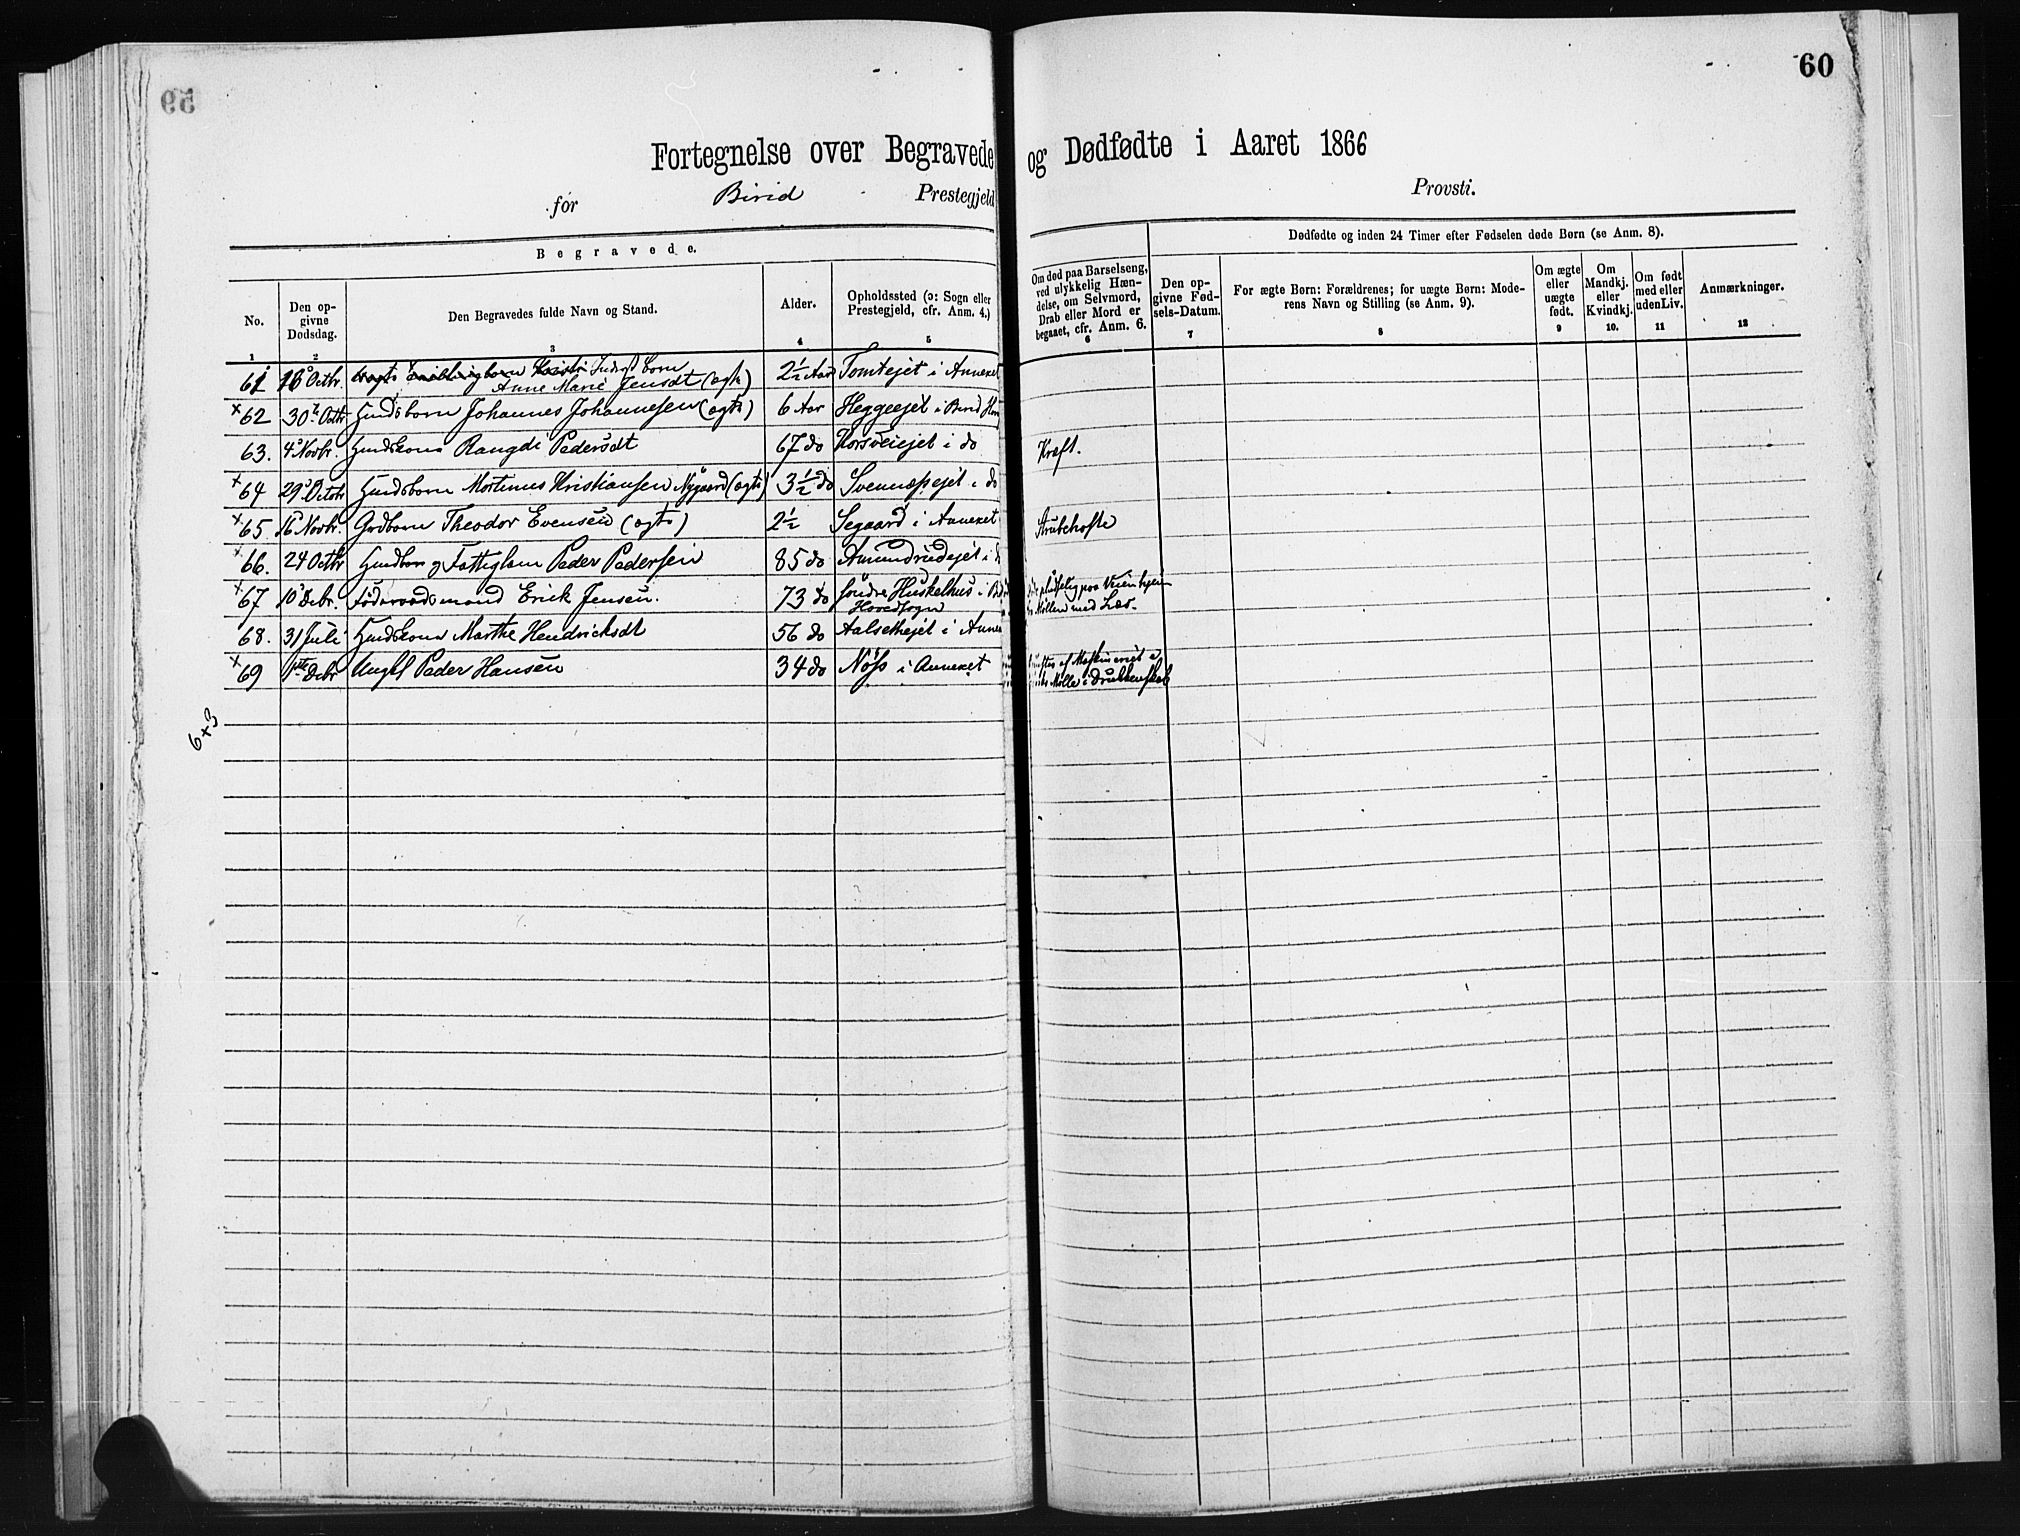 59
60
Fortegnelse over Begravede og Dødfødte i Aaret 1866
for Birid Prestegjeld Provsti.
Begravede.
Dødfødte og inden 24 Timer efter Fødselen døde Børn (se Anm. 8).
No.
Den opgivne Dødsdag.
Den Begravedes fulde Navn og Stand.
Alder.
Opholdssted (ɔ: Sogn eller Prestegjeld, cfr. Anm. 4.)
Om død paa Barselseng, ved ulykkelig Hændelse, om Selvmord, Drab eller Mord er begaaet, cfr. Anm. 6.
Den opgivne Fødsels-Datum.
For ægte Børn: Forældrenes; for uægte Børn: Moderens Navn og Stilling (se Anm. 9).
Om ægte eller uægte født.
Om Mandkj. eller Kvindkj.
Om født med eller uden Liv.
Anmærkninger.
1 2 3 4 5 6 7 8 9 10. 11 12
61 Octbr. Inderst born
Anne Marie Jensdt (ægte) 2½ Aar Tomtejet i Annexet
× 62 30te Octbr Husdsborn Johannes Johannesen (ægte) 6 Aar Heggeejet i Birid
63. 4 Novbr. Husdskone Rangdi Pedersdt 67 do Korsveiejet i do Kræft.
× 64 29 Octobr Husdsborn Mortinus Kristiansen Nygaard (ægte) 3½ do Svennæsejet i do
× 65. 16 Novbr. Grdborn Theodor Evensen (ægte) 2½ Segaard i Annexet Strubehoste
× 66. 24 Octbr Fattiglem Peder Pedersen 85 do Amundrudejet i do
× 67 10 Debr. Föderaadsmand Erik Jensen. 73 do Söndre Huskelhus i Birid
Hovedsogn
Möllen med Læs.
68. 31 Juli Husdskone Marthe Hendricksdt 56 do Aalsethejet i Annex
× 69 1ste Debr Ungk Peder Hansen 34 do Nöss i Annexet af Maskineriet
Mölle i Drukkenskab
6+3